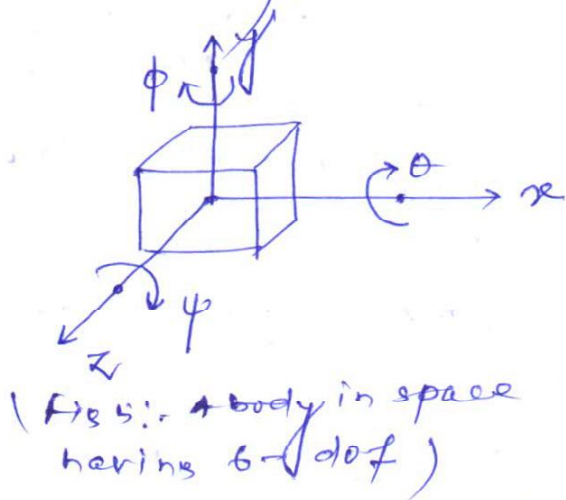 y
ϕ
θ
x
ψ
z
(Fig 5:- A body in space
having 6-dof)